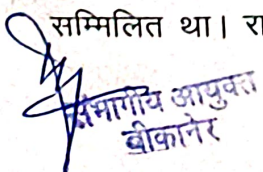 सम्मिलित था। रा
संभागीय आयुक्त
बीकानेर